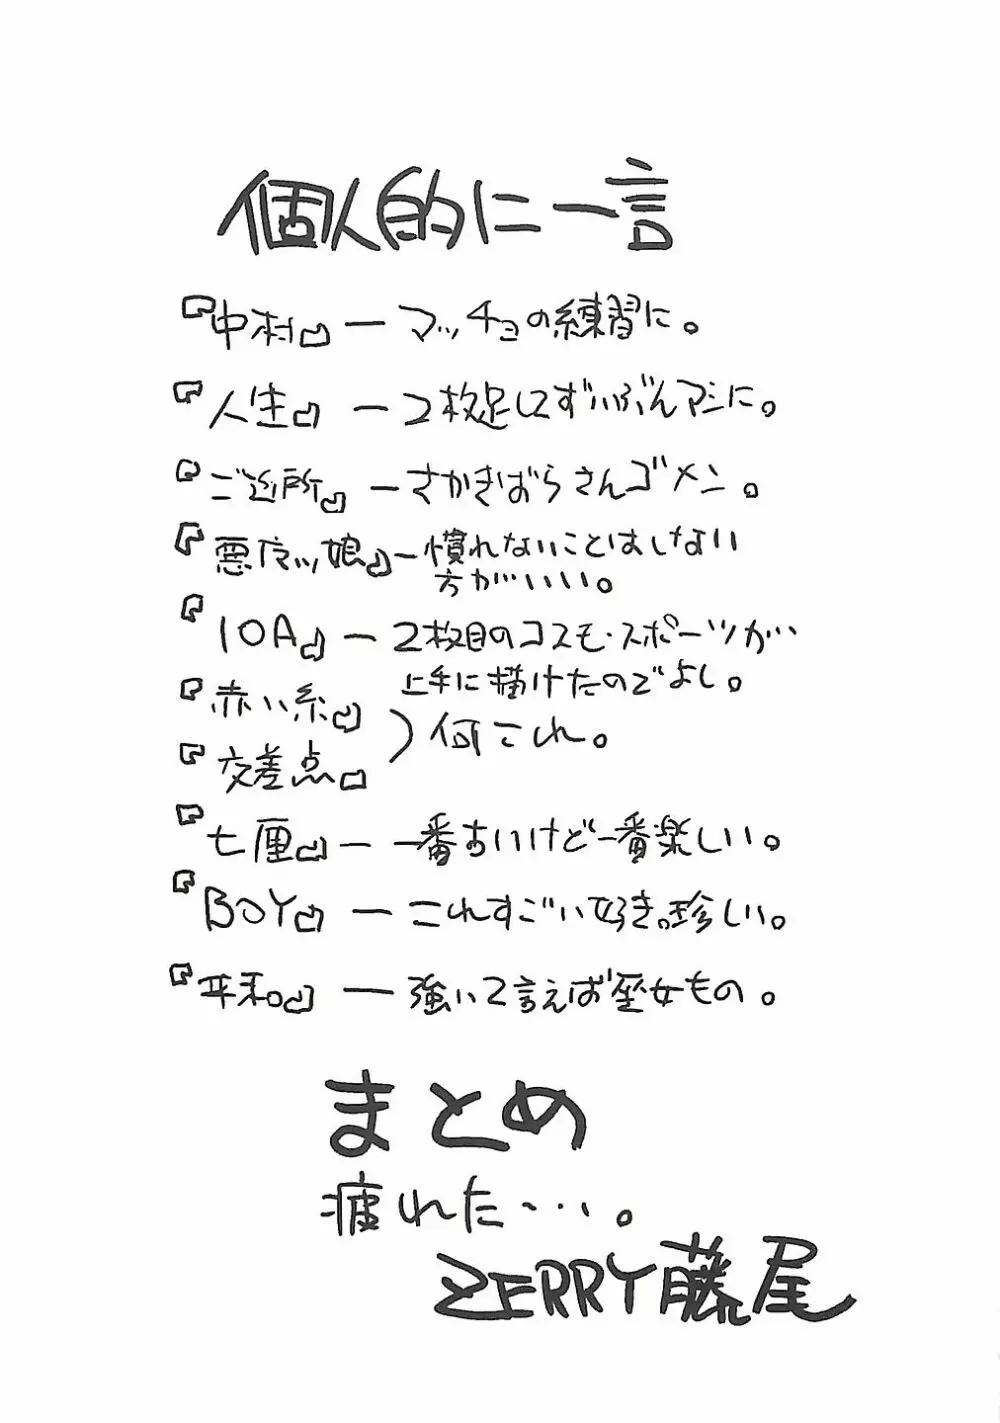 個人的に一言
『中村』 ― マッチョの練習に。
『人生』 ― 2枚足してずいぶんマシに。
『ご近所』 ― さかきばらさんゴメン。
『悪 ッ娘』 ― 慣れないことはしない
方がいいい。
『10A』 ― 2枚目のコスモ・スポーツが
上手に描けたのでよし。
『赤い糸』
『交差点』
) 何これ。
『七厘』 ― 一番 いけど一番楽しい。
『BOY』 ― これすごい好き。珍しい。
『平和。』 ― 強いて言えば もの。
まとめ
疲れた…。
ZERRY藤尾